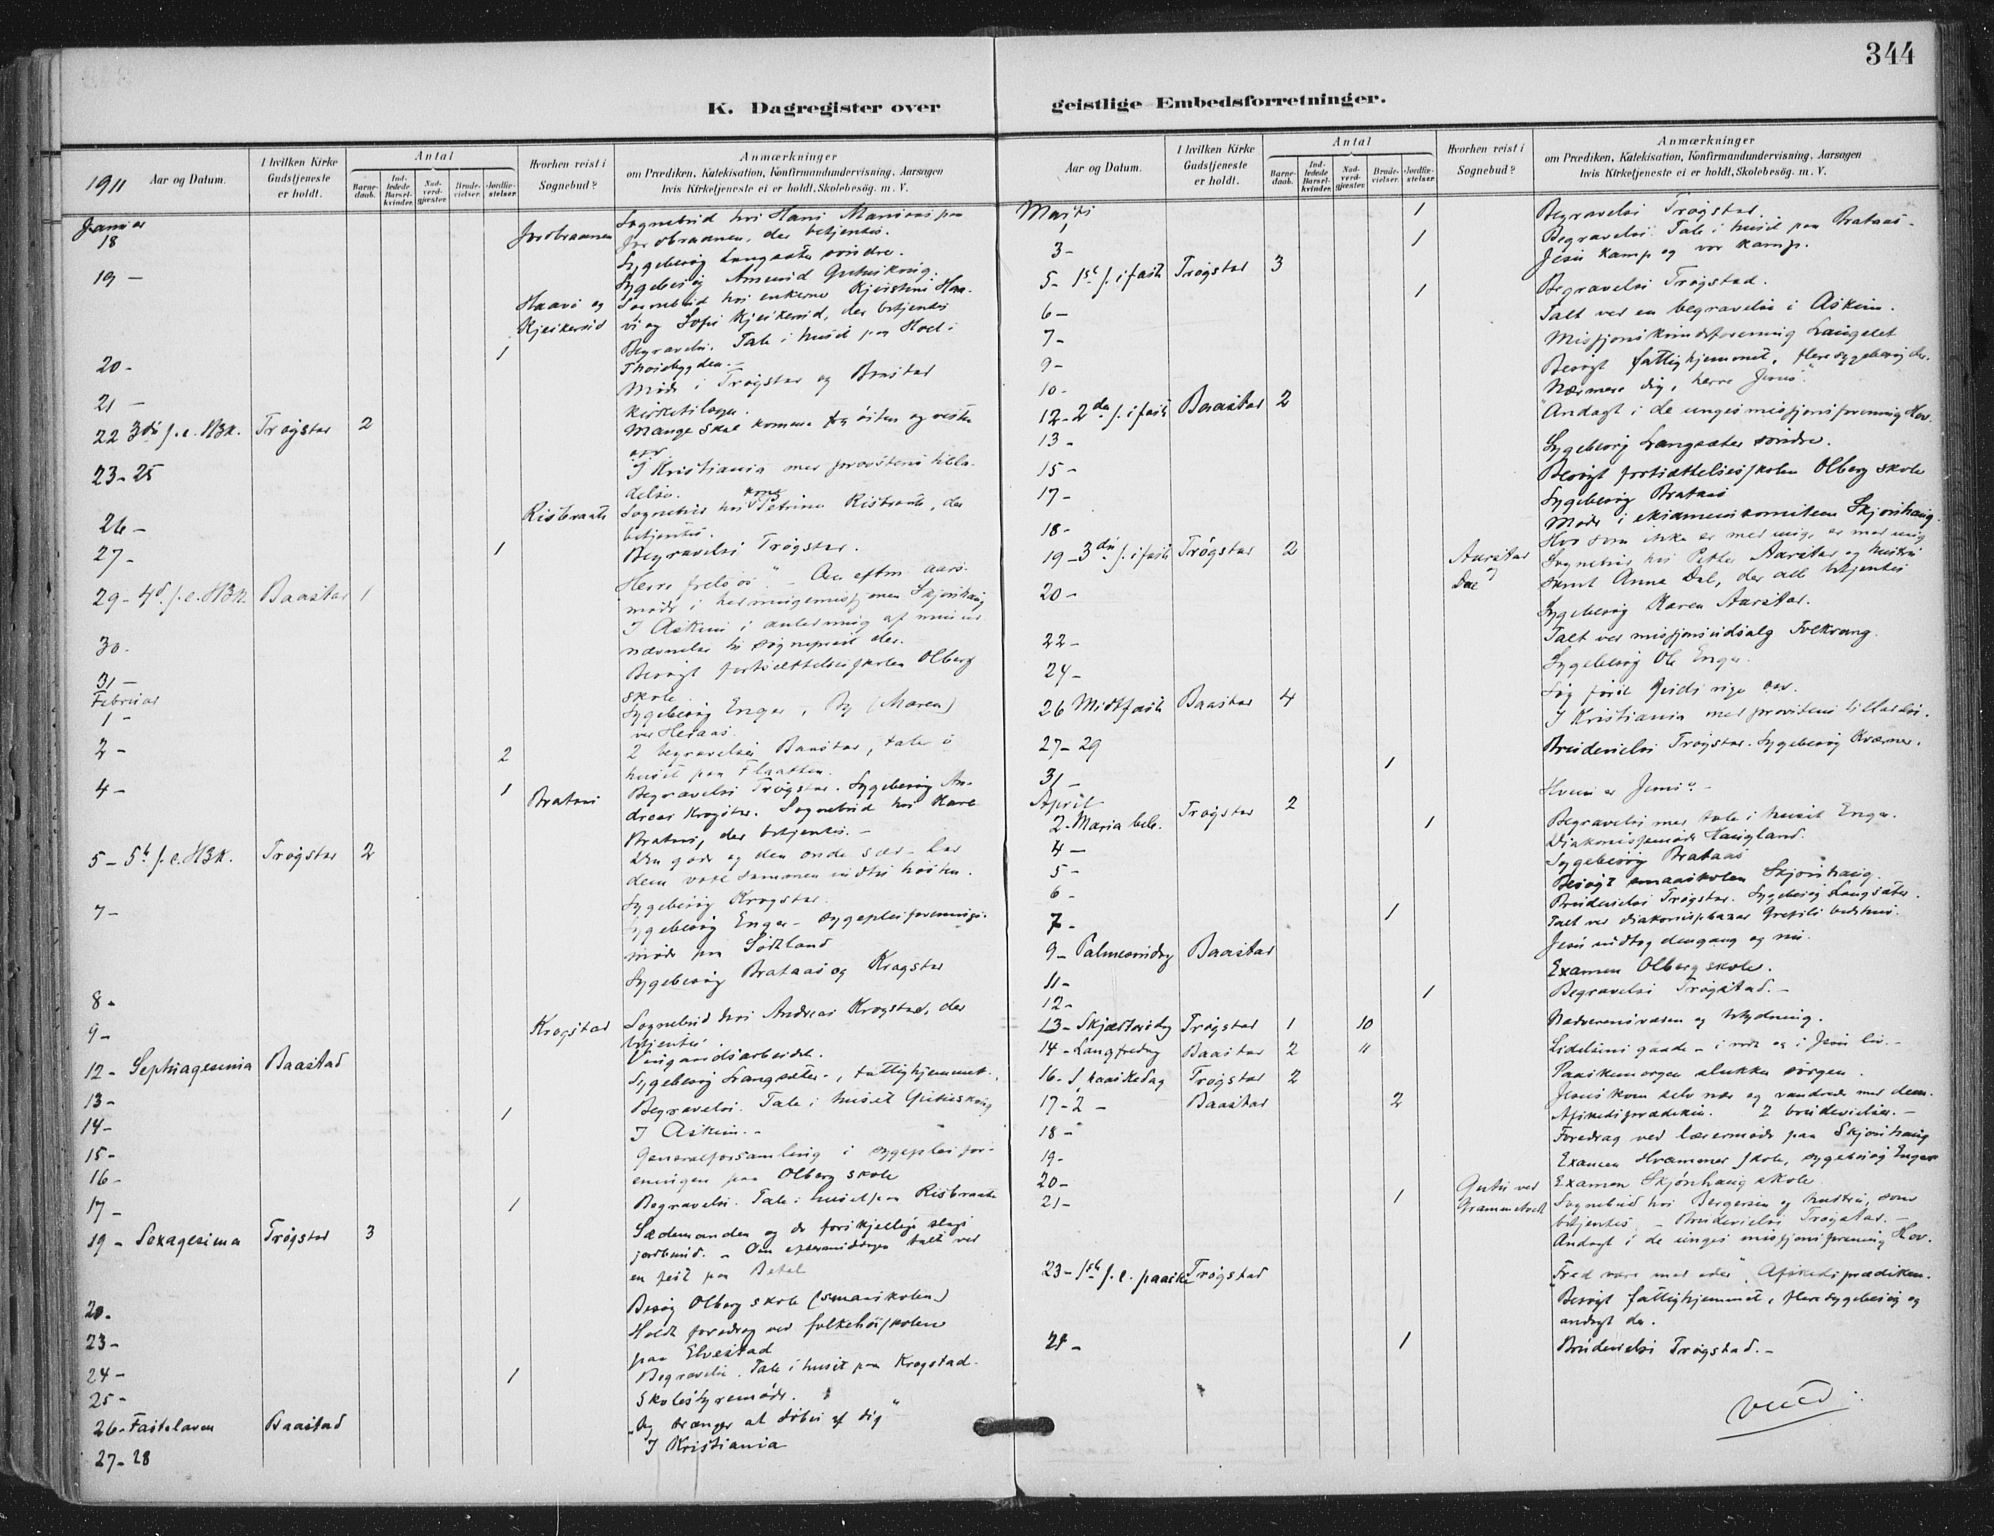 344
K. Dagregister over
geistlige Embedsforretninger.
1911 Aar og Datum.
I hvilken Kirke Gudstjeneste er holdt.
Antal
Barnedaab.
Indledede Barselkvinder.
Nadverdgjester
Brudevielser.
Jordfæstelser
Hvorhen reist i Sognebud?
Anmærkninger
om Prædiken, Katekisation, Konfirmandundervisning, Aarsagen
hvis Kirketjeneste ei er holdt, Skolebesøg. m. V.
Januar
18
Sognebud hos Hans
der betjentes.
Sygebesøg Langsæter søndre.
19 —
Sygebesøg
Haavi og
Sognebud hos enkerne
der betjentes
1 Begravelse. Tale i huset paa Hoel i
20 -
Møde i Trøgstad og Baastad
21 —
kirketilsyn.
22 3die s. e. H3K. Trøgstad 2
Mange skal komme fra østen og vesten
23-25
I Kristiania med provstens tilla-
delse.
26 —
Risbraate Sognebud hos Petrine Risbraate, der
betjentes.
27 - 1 Begravelse Trøgstad.
29 - 4d. s. e. H3K. Baastad 1
Herre frels os". - Om eftm. aars-
møde i
Skjønhaug
30 -
I Askim i anledning af min ud-
nævnelse til sogneprest der.
31 —
Besøgt fortsættelsesskolen Olberg
skole.
Februar
1 -
Sygebesøg Enger, By (Maren)
2 - 2
2 begravelser Baastad, tale i
huset paa Flaatten.
4 - 1 Brataas
Begravelse Trøgstad. Sygebesøg An-
dreas Krogstad. Sognebud hos
Brataas, der betjentes. —
5 - 5te s. e. H3K. Trøgstad 2
Den gode og den onde sæd - lad
dem voxe sammen indtil høsten.
7 -
Sygebesøg Krogstad.
Sygebesøg Enger - sygepleieforenings-
møde paa
8 -
Sygebesøg Brataas og Krogstad
9 - Krogstad
Sognebud hos Andreas Krogstad, der
betjentes.
12 - Septuagesima Baastad
Vingaardsarbeidet.
13 -
Sygebesøg Langsæter, fattighjemmet.
14 - 1
Begravelse. Tale i huset
15 -
I Askim. -
16 -
Generalforsamling i sygepleiefor-
eningen paa Olberg skole
17 - 1
Begravelse. Tale i huset paa Risbraate
19 - Sexagesima Trøgstad 3
Sædemanden og de forskjellige slags
jordbund. - Om eftermiddagen talt ved
en fest paa Betel
20 -
Besøg Olberg skole (smaaskolen)
23 -
Holdt foredrag ved folkehøiskolen
paa Elvestad
24 - 1
Begravelse. Tale i huset paa Krogstad.
25 -
Skolestyremøde.
26 - Fastelaven Baastad
"Jeg trænger at døbes af dig"
27-28
I Kristiania
Aar og Datum.
I hvilken Kirke Gudstjeneste er holdt.
Antal
Barnedaab.
Indledede Barselkvinder.
Nadverdgjester
Brudevielser.
Jordfæstelser
Hvorhen reist i Sognebud?
Anmærkninger
om Prædiken, Katekisation, Konfirmandundervisning, Aarsagen
hvis Kirketjeneste ei er holdt, Skolebesøg. m. V.
Marts
1 1
Begravelse Trøgstad.
3 - 1
Begravelse. Tale i huset paa Brataas.
5 - 1st s. i faste Trøgstad 3
Jesu kamp og vor kamp.
6 — 1
Begravelse Trøgstad.
7 -
Talt ved en begravelse i Askim.
9 -
Misjonskvindeforening Langelet
10 -
Besøgt fattighjemmet, flere sygebesøg der.
12 - 2den s. i faste Baastad 2
Nærmere dig, herre Jesus".
13 -
Andagt i de unges misjonsforening Hov.
15 -
Sygebesøg Langsæter søndre.
17 -
Besøgt fortsættelsesskolen Olberg skole
Sygebesøg Brataas
18 -
Møde i Skjønhaug.
19 - 3die s. i faste Trøgstad 2
Hvo som ikke er med mig er mod mig
20 -
Aarstad og Dal
Sognebud hos Petter Aarstad og hustru
samt Anna Dal, der alle betjentes
22 -
Sygebesøg Karen Aarstad.
Talt ved misjonsudsalg
24 -
Sygebesøg Ole Enger.
26 Midtfaste Baastad 4
Søg først Guds rige
27-29
I Kristiania med provstens tilladelse.
31 — 1
Brudevielse Trøgstad. Sygebesøg
April
2 - Maria beb. Trøgstad 2
Hvem er Jesus". -
4 — 1
Begravelse med tale i huset Enger.
5 -
Sygebesøg Brataas
6 -
Besøgt smaaskolen Skjønhaug.
7 - 1
Brudevielse Trøgstad. Sygebesøg Langsæter.
Talt ved diakonissebazar
9 - Palmesøndag Baastad
Jesu indtog dengang og nu.
11 -
Examen Olberg skole.
12 - 1
Begravelse Trøgstad. -
13 - Skjærtorsdag Trøgstad 1 10
Nadverens væsen og betydning.
14 - Langfredag Baastad 2 11
Lidelsens gaade - i vort og i Jesu liv. -
16 - 1 paaskedag Trøgstad 2
Paaskemorgen slukker sorgen.
17 - 2 — Baastad 2
Jesus kom selv nær og vandrede med dem.
Afskedsprædiken. 2 brudevielser. -
18 -
Foredrag ved lærermøde paa Skjønhaug
19 -
Examen Hvammer skole, sygebesøg Enger
20 -
Examen Skjønhaug skole.
21 - 1
Sognebud hos Bergersen og hustru, som
betjentes. - Brudevielse Trøgstad. -
Andagt i de unges misjonsforening Hov.
23 - 1st s. e. paaske Trøgstad
"Fred være med eder". Afskedsprædiken.
Besøgt fattighjemmet, flere sygebesøg og
andagt der.
1
Brudevielse Trøgstad. -